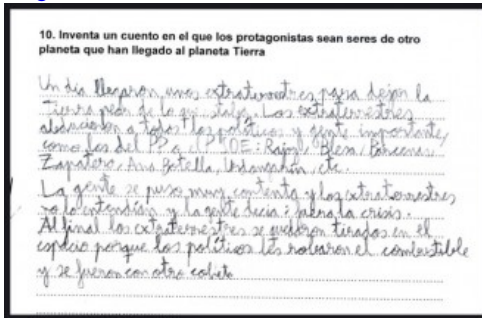 10. Inventa un cuento en el que los protagonistas sean seres de otro
planeta que han llegado al planeta Tierra
Un día llegaron unos extraterrestres para dejar la
Tierra peor de lo que estaba. Los extraterrestres
abducieron a todos los políticos y gente importante,
como los del PP o el PSOE: Rajoy, Blesa, Bárcenas,
Zapatero, Ana Botella, Urdangarín, etc.
La gente se puso muy contenta y los extraterrestres
no lo entendían y la gente decía: fuera la crisis.
Al final los extraterrestres se quedaron tirados en el
espacio porque los políticos les robaron el combustible
y se fueron con otro cohete